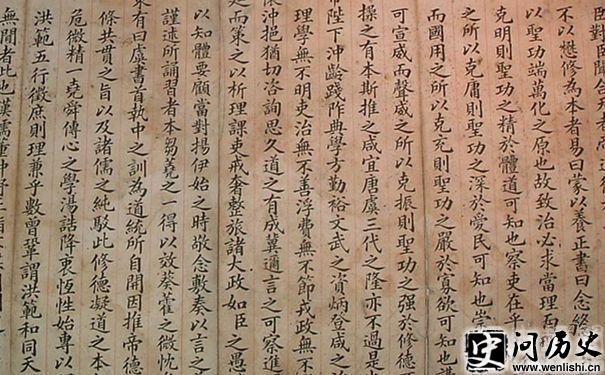 臣對臣聞合天者尚道
不以懋修為本者易曰蒙以養正書曰念終
以聖功端萬化之原也故致治必求當理而
克明則聖功之精於體道可知也察吏在乎
之所以克庸則聖功之深於愛民可知也崇
而國用之所以克充則聖功之嚴於寡欲可知也講
可宣威而聲威之所以克振則聖功之強於修德
操之有本斯推之咸宜唐虞三代之隆亦不過是
帝陛下沖齡踐阼典學方勤裕文武之資炳登咸之
理學無不明吏治無不善浮費無不節戎政無不
懷沖挹猶切咨詢思久道之有成冀邇言之可察進
之而策之以析理課吏戒奢整旅諸大政如臣之愚
以知體要顧當對揚伊始之時敬念敷奏以言之
謹述所誦習者本芻蕘之一得以放葵藿之微忱
來有曰虞書首執中之訓為道統所自開因推帝德
條共貫之旨以及諸儒之純駁此修德凝道之本
危微精一堯舜傳心之學湯誥降衷恆性始專以
洪範五行徵庶則理兼乎數曾鞏謂洪範和同天
無聞者此也漢儒董仲舒三
问历史
www.wenlishi.cn